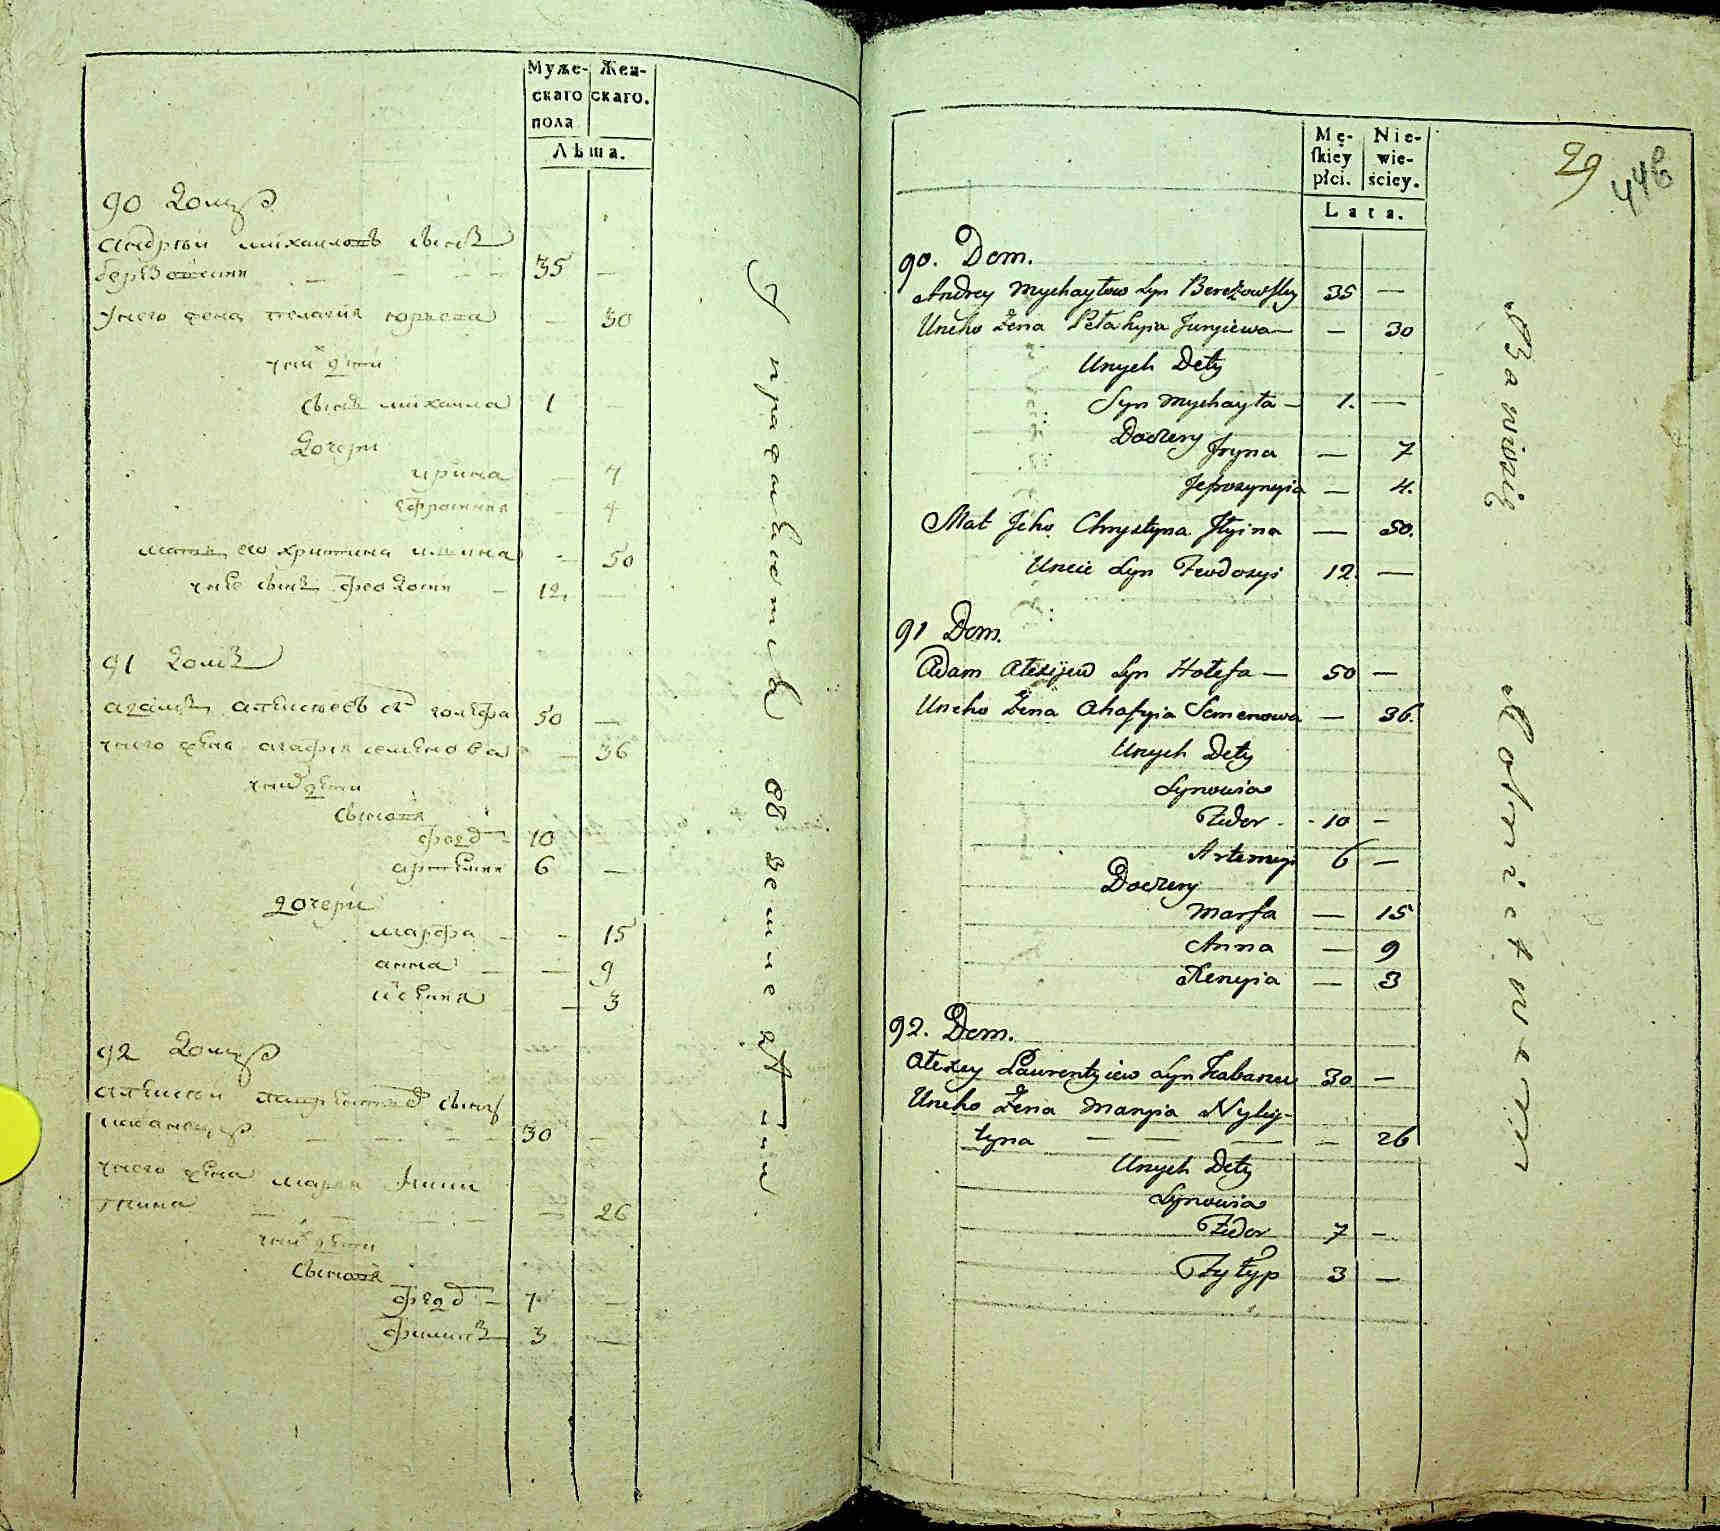 Муже- Жен-
скаго скаго.
пола
Лѣта.
90 домъ
андрей михайловъ сынъ
березовский — 35 —
у него жена пелагия юрьева — 30
у них дети
сынъ михаила 1 —
дочери
ирина — 7
ефросиния — 4
мать его христина ильина — 50
у нее сынъ феодосий — 12. —
91 домъ
адамъ алексеевъ сынъ голефа 50 —
у него жена агафия семенова — 36
у них дети
сыновя
федор — 10
артемий 6 —
дочери
марфа — — 15
анна — — 9
ксения — 3
92 домъ
алексей лаврентиевъ сынъ
30 —
у него жена мария
— 26
у них дети
сыновя
федор — 7 —
филипъ 3 —
Mę- Nie-
skiey wie-
płci. sciey.
Lata.
29
446
90. Dom.
Andrey Mychayłow Syn Berezowsky 35 —
Uneho Żena Pełahyia Juryiewa — — 30
Unych Dety
Syn Mychayła — 1. —
Doczery
Jryna — 7
Jefrozynyia — 4.
Mat Jeho Chrystyna Jłyina — 50.
Uneie Syn Feodozyi 12. —
91 Dom.
Adam Ałexijew Syn Hołefa — 50 —
Uneho Żena Ahafyia Semenowa — 36.
Unych Dety
Synowia
Fedor - 10 —
Artemyi 6 —
Doczery
Marfa — 15
Anna — 9
Xenyia — 3
92. Dom.
Ałexey Laurentyiew Syn 30 —
Uneho Żena Maryia Nyky-
tyna — — — — 26
Unych Dety
Synowia
Fedor 7 —
Fyłyp 3 —